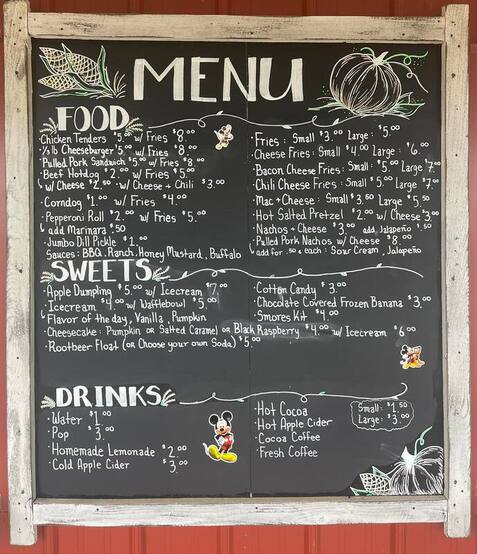 MENU
FOOD
·Chicken Tenders $5.00 w/ Fries $8.00
·1/3 lb Cheeseburger $5.00 w/ Fries $8.00
·Pulled Pork Sandwich $5.00 w/ Fries $8.00
·Beef Hotdog $2.00 w/ Fries $5.00
w/ Cheese $2.50 · w/ Cheese + Chili $3.00
·Corndog $1.00 w/ Fries $4.00
·Pepperoni Roll $2.00 w/ Fries $5.00
add Marinara $.50
·Jumbo Dill Pickle $1.00
Sauces: BBQ, Ranch, Honey Mustard, Buffalo
·Fries: Small $3.00 Large: $5.00
·Cheese Fries: Small $4.00 Large: $6.00
·Bacon Cheese Fries: Small: $5.00 Large $7.00
·Chili Cheese Fries: Small $5.00 Large $7.00
·Mac + Cheese: Small $3.50 Large $5.50
·Hot Salted Pretzel $2.00 w/ Cheese $3.00
·Nachos + Cheese $3.00 add Jalapeño $.50
·Pulled Pork Nachos w/ Cheese $8.00
add for .50 each: Sour Cream, Jalapeño
SWEETS
·Apple Dumpling $5.00 w/ Icecream $7.00
·Icecream $4.00 w/ Wafflebowl $5.00
Flavor of the day, Vanilla, Pumpkin
·Cheesecake: Pumpkin or Salted Caramel or Black Raspberry $4.00 w/ Icecream $6.00
·Rootbeer Float (or Choose your own Soda) $5.00
·Cotton Candy $3.00
·Chocolate Covered Frozen Banana $3.00
·Smores Kit $4.00
DRINKS
·Water $1.00
·Pop $3.00
·Homemade Lemonade $2.00
·Cold Apple Cider $3.00
·Hot Cocoa
·Hot Apple Cider
·Cocoa Coffee
·Fresh Coffee
Small: $1.50
Large: $3.00